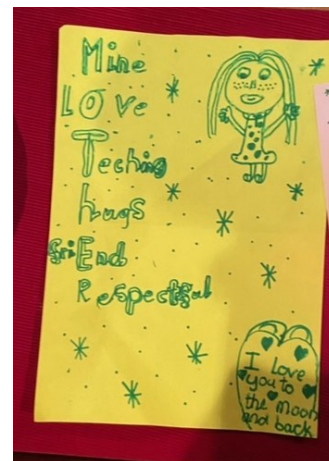 Mine
LOve
Teching
hugs
friEnd
Respectful
I love
you to
the moon
and back